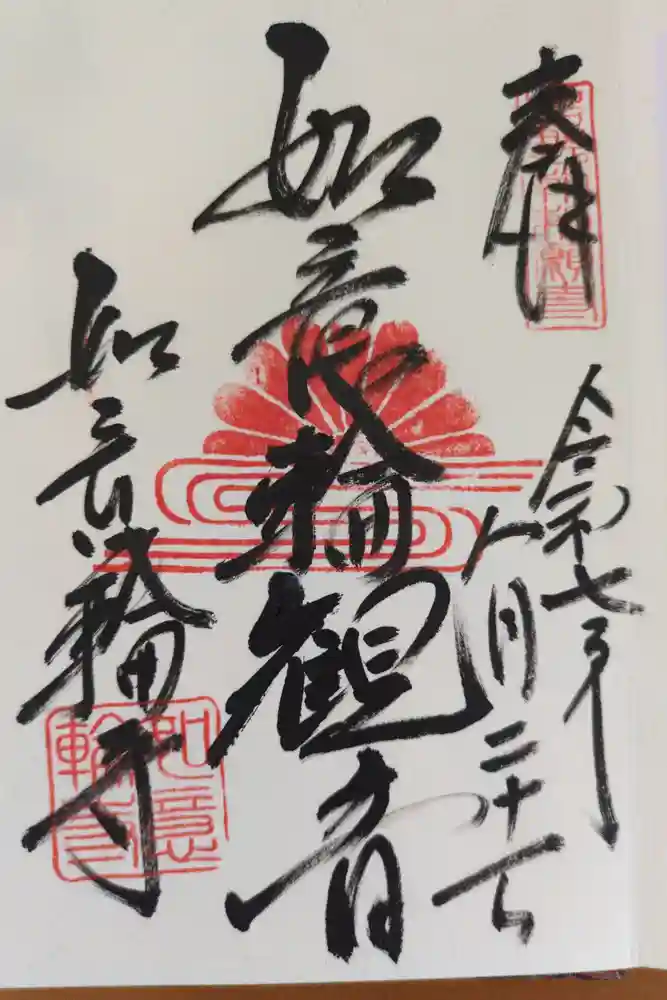 奉拝
令和七年
八月二十
如意輪観音
如意輪寺
如意
輪寺